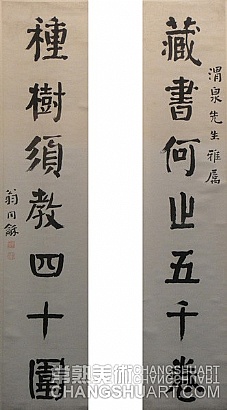 藏書何止五千卷
渭泉先生雅屬
種樹須教四十圍
翁同龢
常熟美術
CHANGSHUART
CHANGSHUART.COM